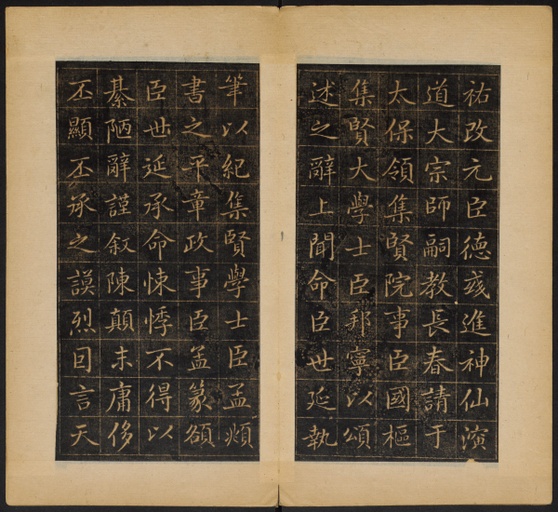 祐改元臣德彧進神仙演
道大宗師嗣教長春請于
太保領集賢院事臣國樞
集賢大學士臣邦寧以頌
述之辭上聞命臣世延執
筆以紀集賢學士臣孟頫
書之平章政事臣孟篆額
臣世延承命悚悸不得以
綦陋辭謹叙陳顛末庸侈
丕顯丕承之謨烈囙言天